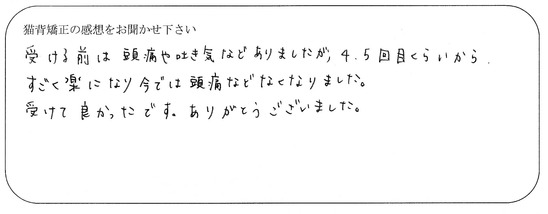 猫背矯正の感想をお聞かせ下さい
受ける前は頭痛や吐き気などありましたが、4.5回目くらいから、
すごく楽になり今では頭痛などなくなりました。
受けて良かったです。ありがとうございました。